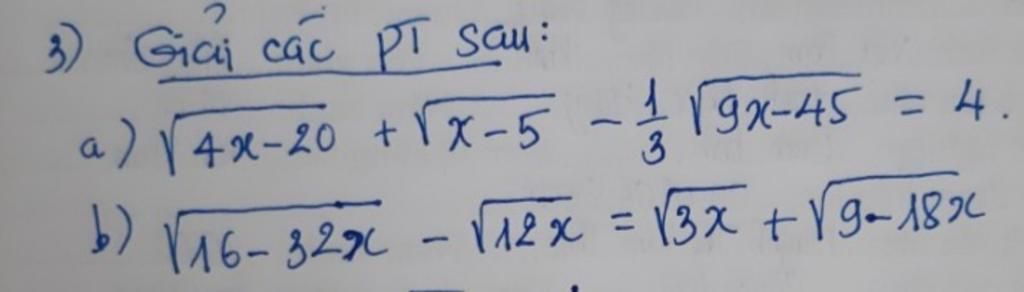 3) Giải các PT sau:
a) √(4x-20) + √(x-5) - 1/3 √(9x-45) = 4.
b) √(16-32x) - √(12x) = √(3x) + √(9-18x)